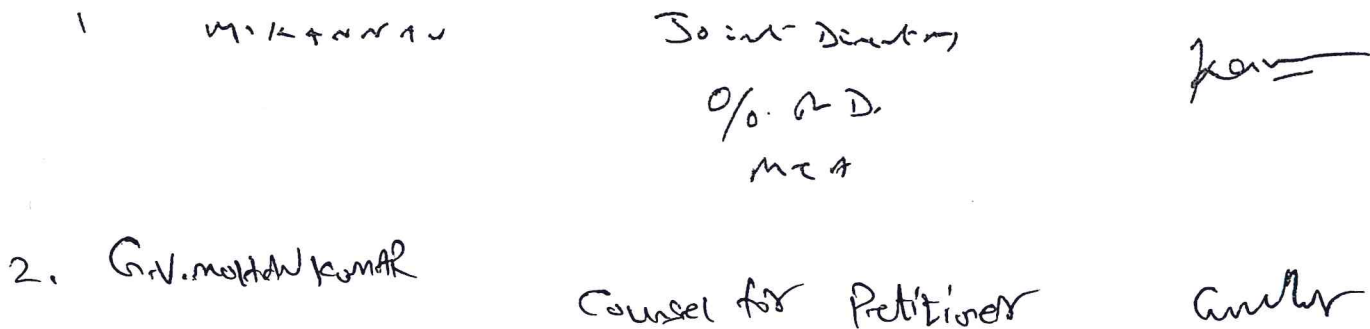 1 M. KANNAN Joint Director
O/o. RD.
MCA
2. G.V. MOHAN KUMAR
Counsel for Petitioner